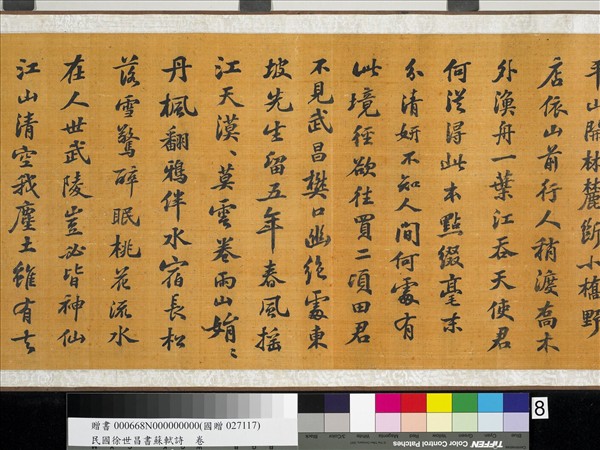 平山開林麓斷小橋野
店依山前行人稍渡喬木
外漁舟一葉江吞天使君
何從得此本點綴毫末
分清妍不知人間何處有
此境徑欲往買二頃田君
不見武昌樊口幽絕處東
坡先生留五年春風搖
江天漠〻莫雲卷雨山娟〻
丹楓翻鴉伴水宿長松
落雪驚醉眠桃花流水
在人世武陵豈必皆神仙
江山清空我塵土雖有去
贈書 000668N000000000(國贈 027117)
民國徐世昌書蘇軾詩 卷
8
Blue Cyan Green Yellow Red Magenta White 3/Color Black
TIFFEN Color Control Patches